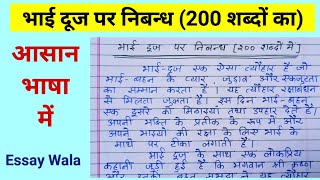 भाई दूज पर निबन्ध (200 शब्दों का)
आसान
भाषा
में
Essay Wala
भाई दूज पर निबन्ध (200 शब्दों में)
भाई-दूज एक ऐसा त्यौहार है जो
भाई-बहन के प्यार, जुड़ाव और एकजुटता
का सम्मान करता है। यह त्यौहार रक्षाबंधन
से मिलता जुलता है। इस दिन भाई-बहन
एक दूसरे को मिठाइयां तथा उपहार देते हैं।
अपनी भक्ति के प्रतीक के रूप में और
अपने भाइयों की रक्षा के लिए भाई के
माथे पर टीका लगाती हैं।
भाई दूज के साथ एक लोकप्रिय
कहानी जुड़ी हुई है कि भगवान श्री कृष्ण